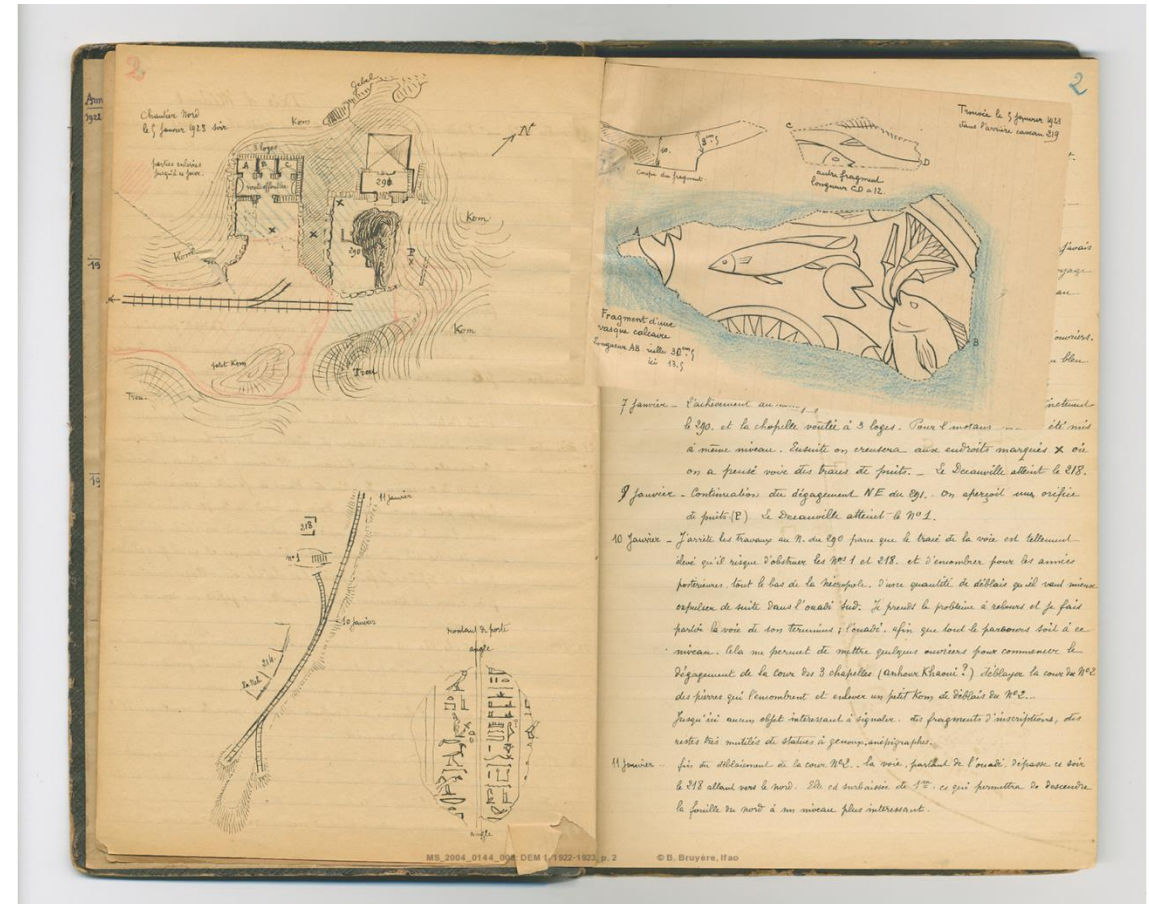 2
Arm
1922
19
19
Chantier Nord
le 5 janvier 1923 soir
Gebel
Kom
N
3 loges
parties enterrées
A B C
290
Kom
Kom
290
P
Kom
petit Kom
Trou
Trou.
11 Janvier
218
N° 1
10 Janvier
214
montant de porte
angle
angle
2
Trouvée le 5 janvier 1923
dans l'arrière caveau 219
10.
Coupe du fragment.
C
D
autre fragment
longueur CD = 12.
A
B
Fragment d'une
vasque calcaire
longueur AB. réelle 30 cm 5
ici 13,5
t.
J'avais
au
ouvriers.
bleu
7 Janvier _ L'achèvement du
le 290. et la chapelle voutée à 3 loges. Pour l'instant été mis
à même niveau. Ensuite on creusera aux endroits marqués x où
on a pensé voir des traces de puits. _ Le Decauville atteint le 218.
9 Janvier _ Continuation du dégagement NE du 291. On aperçoit un orifice
de puits (P). Le Decauville atteint le N° 1.
10 Janvier _ J'arrête les travaux au N. du 290 parce que le tracé de la voie est tellement
élevé qu'il risque d'obstruer les Nos 1 et 218. et d'encombrer pour les années
postérieures tout le bas de la nécropole, d'une quantité de déblais qu'il vaut mieux
expulser de suite dans l'ouadi sud. Je prends le problème à rebours et je fais
partir la voie de son terminus ; l'ouadi. afin que tout le parcours soit à ce
niveau. Cela me permet de mettre quelques ouvriers pour commencer le
dégagement de la cour des 3 chapelles (anhour Khaoui ?) déblayer la cour du N° 2
des pierres qui l'encombrent et enlever un petit Kom de déblais du N° 2...
Jusqu'ici aucun objet intéressant à signaler. des fragments d'inscriptions, des
restes très mutilés de statues à genoux, anépigraphes.
11 Janvier _ fin du déblaiement de la cour N° 2. _ la voie, partant de l'ouadi, dépasse ce soir
le 218 allant vers le nord. Elle est surbaissée de 1m. ce qui permettra de descendre
la fouille du nord à un niveau plus intéressant.
MS_2004_0144_006; DEM 1, 1922-1923, p. 2 © B. Bruyère, Ifao